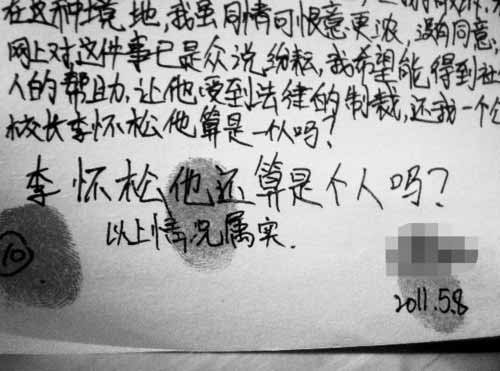 在这种境地,我虽同情可恨意更浓,没有同意,
网上对这件事已是众说纷耘,我希望能得到社
人的帮助,让他受到法律的制裁,还我一个公
校长李怀松他算是一个人吗?
李怀松他还算是个人吗?
以上情况属实.
10
2011.5.8